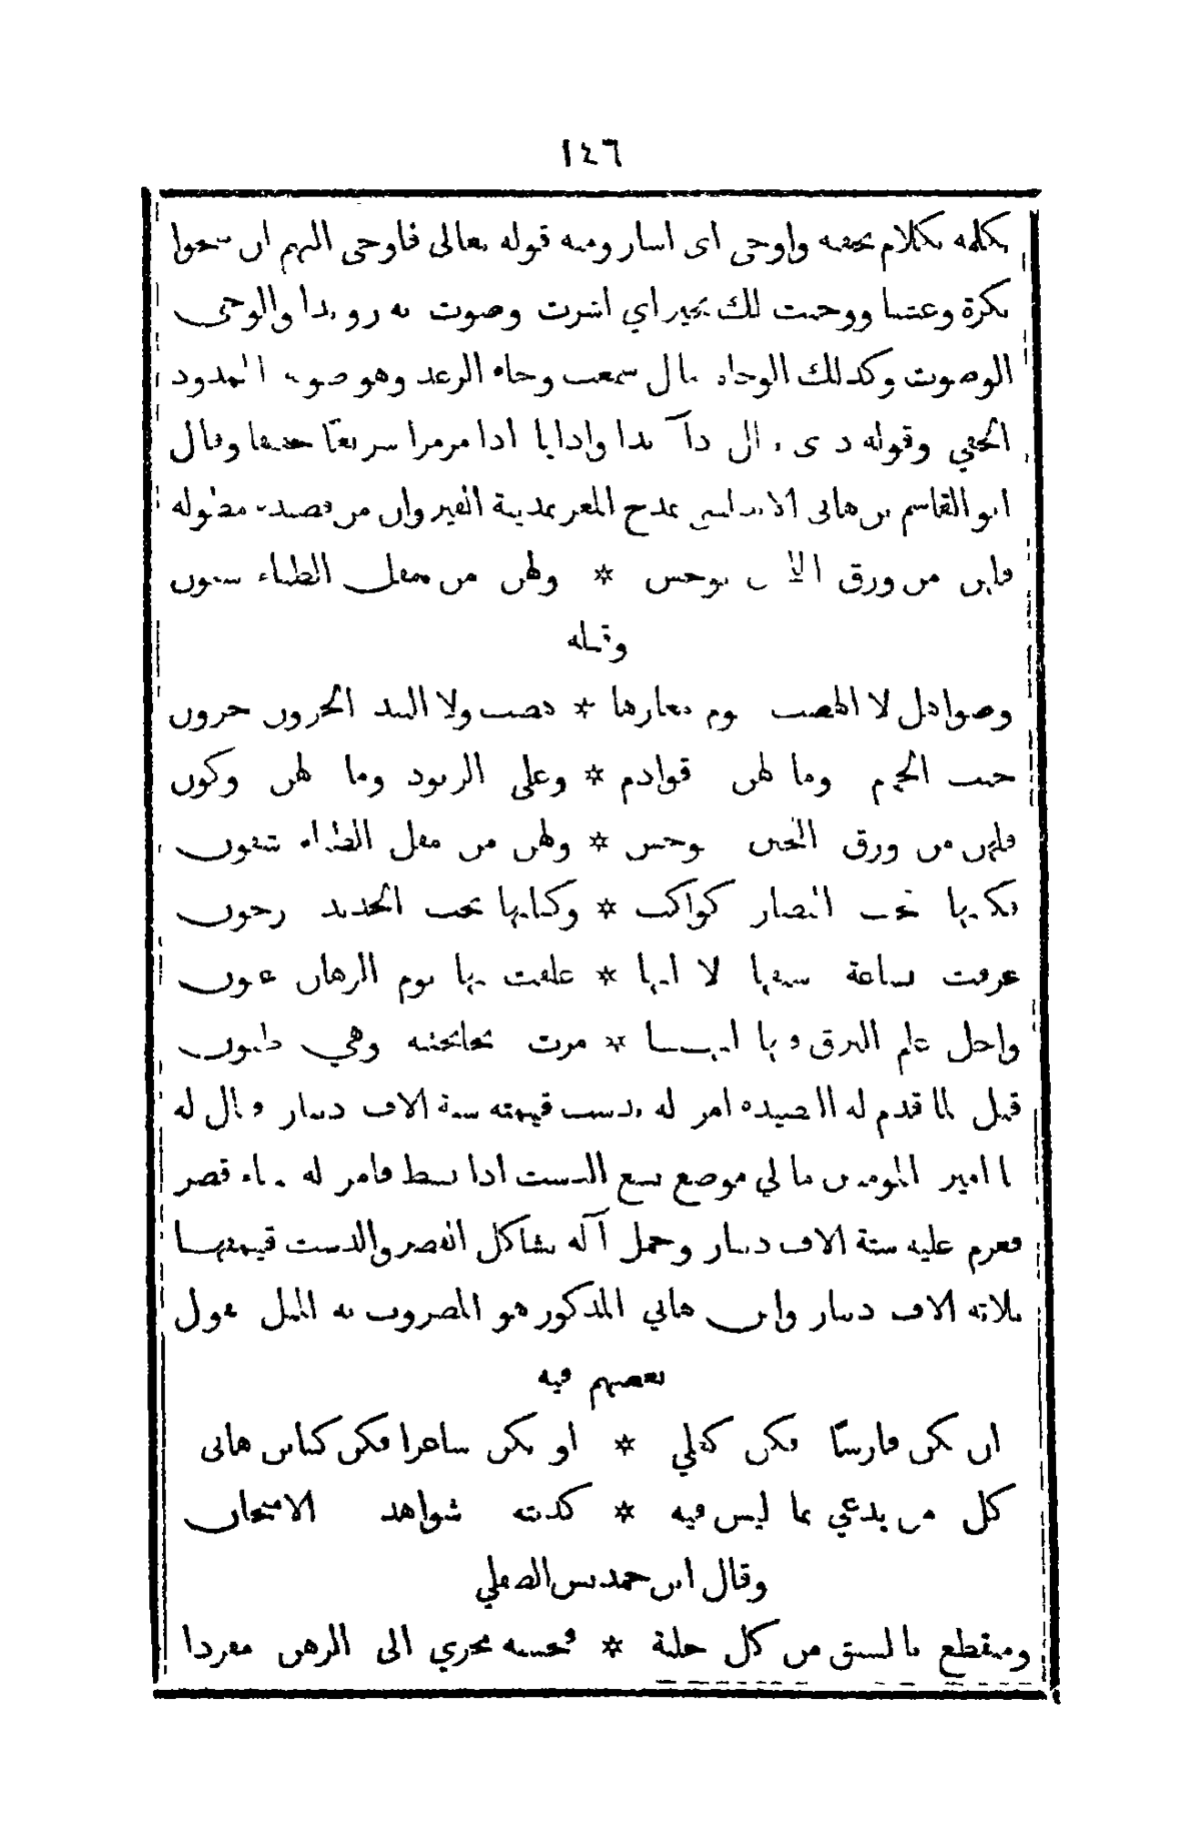 ١٤٦
تكلمه بكلام تخفيه واوحى اى اشار ومنه قوله تعالى فاوحى اليهم ان سبحوا
بكرة وعشيا ووحيت لك بخير اي اشرت وصوت به رويدا والوحى
الصوت وكذلك الوحاه يقال سمعت وحاه الرعد وهو صوته الممدود
الخفي وقوله وادايا ادا مر مرا سريعًا خفيفا وقال
ابو القاسم بن هانى الاندلسي يمدح المعز بمدينة القيروان من قصيدة مطولة
فلهن من ورق توجس * ولهن من مقل الظباء شفون
وقبله
وصواهل لا الهضب يوم مغارها * هضب ولا البيد الحزون حزون
جنب الحمام وما لهن قوادم * وعلى الربود وما لهن وكون
فلهن من ورق اللجين توجس * ولهن من مقل الظباء شفون
فكانها تحت النضار كواكب * وكانها تحت الحديد دجون
عرفت بساعة سبقها لا انها * علقت بها يوم الرهان عيون
واجل علم البرق فيها انهـا * مرت بجانحتيه وهي ظنون
قيل لما قدم له القصيده امر له بدست قيمته ستة الاف دينار فقال له
يا امير المومنين ما لي موضع يسع الدست اذا بسط فامر له ببناء قصر
فغرم عليه ستة الاف دينار وحمل آلة تشاكل القصر والدست قيمتهـا
ثلاثه الاف دينار وابن هاني المذكور هو المضروب به المثل يقول
بعضهم فيه
ان تكن فارسًا فكن كعلي * او تكن شاعرا فكن كابن هانى
كل من يدعي بما ليس فيه * كذبته شواهد الامتحان
وقال ابن حمديس الصقلي
ومنقطع بالسبق من كل حلبة * فتحسبه يجري الى الرهن مفردا